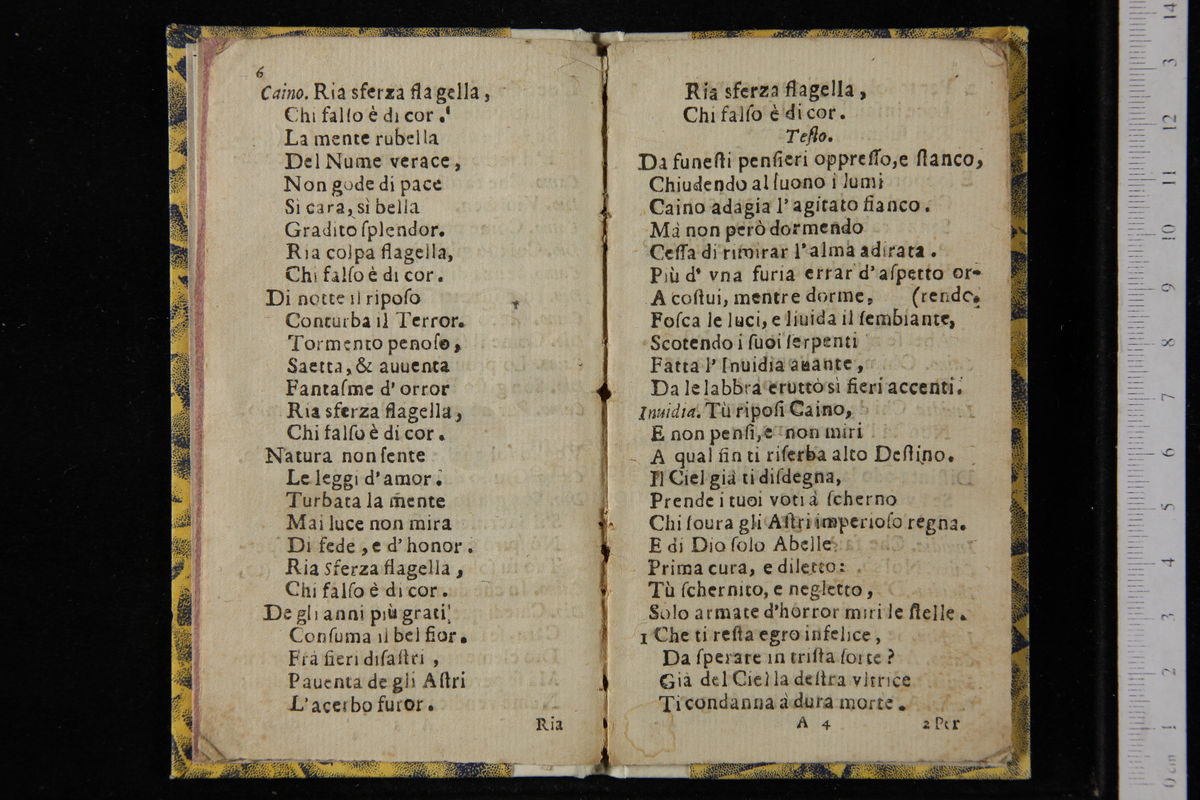 6
Caino. Ria sferza flagella,
Chi falſo è di cor.
La mente rubella
Del Nume verace,
Non gode di pace
Sì cara, sì bella
Gradito ſplendor.
Ria colpa flagella,
Chi falſo è di cor.
Di notte il ripoſo
Conturba il Terror.
Tormento penoſo,
Saetta, & auuenta
Fantaſme d'orror
Ria sferza flagella,
Chi falſo è di cor.
Natura non ſente
Le leggi d'amor.
Turbata la mente
Mai luce non mira
Di fede, e d'honor.
Ria Sferza flagella,
Chi falſo è di cor.
De gli anni più grati
Conſuma il bel fior.
Frà fieri diſaſtri,
Pauenta de gli Aſtri
L'acerbo furor.
Ria
Ria sferza flagella,
Chi falſo è di cor.
Teſto.
Da funeſti penſieri oppreſſo, e ſtanco,
Chiudendo al ſuono i lumi
Caino adagia l'agitato fianco.
Mà non però dormendo
Ceſſa di rimirar l'alma adirata.
Più d'vna furia errar d'aſpetto or-
A coſtui, mentre dorme, (rendo.
Foſca le luci, e liuida il ſembiante,
Scotendo i ſuoi ſerpenti
Fatta l'Inuidia auante,
Da le labbra eruttò sì fieri accenti.
Inuidia. Tù ripoſi Caino,
E non penſi, e non miri
A qual fin ti riſerba alto Deſtino.
Il Ciel già ti diſdegna,
Prende i tuoi voti à ſcherno
Chi ſoura gli Aſtri imperioſo regna.
E di Dio ſolo Abelle
Prima cura, e diletto:
Tù ſchernito, e negletto,
Solo armate d'horror miri le ſtelle.
1 Che ti reſta egro infelice,
Da ſperare in triſta ſorte?
Già del Ciel la deſtra vltrice
Ti condanna à dura morte.
A 4 2 Per